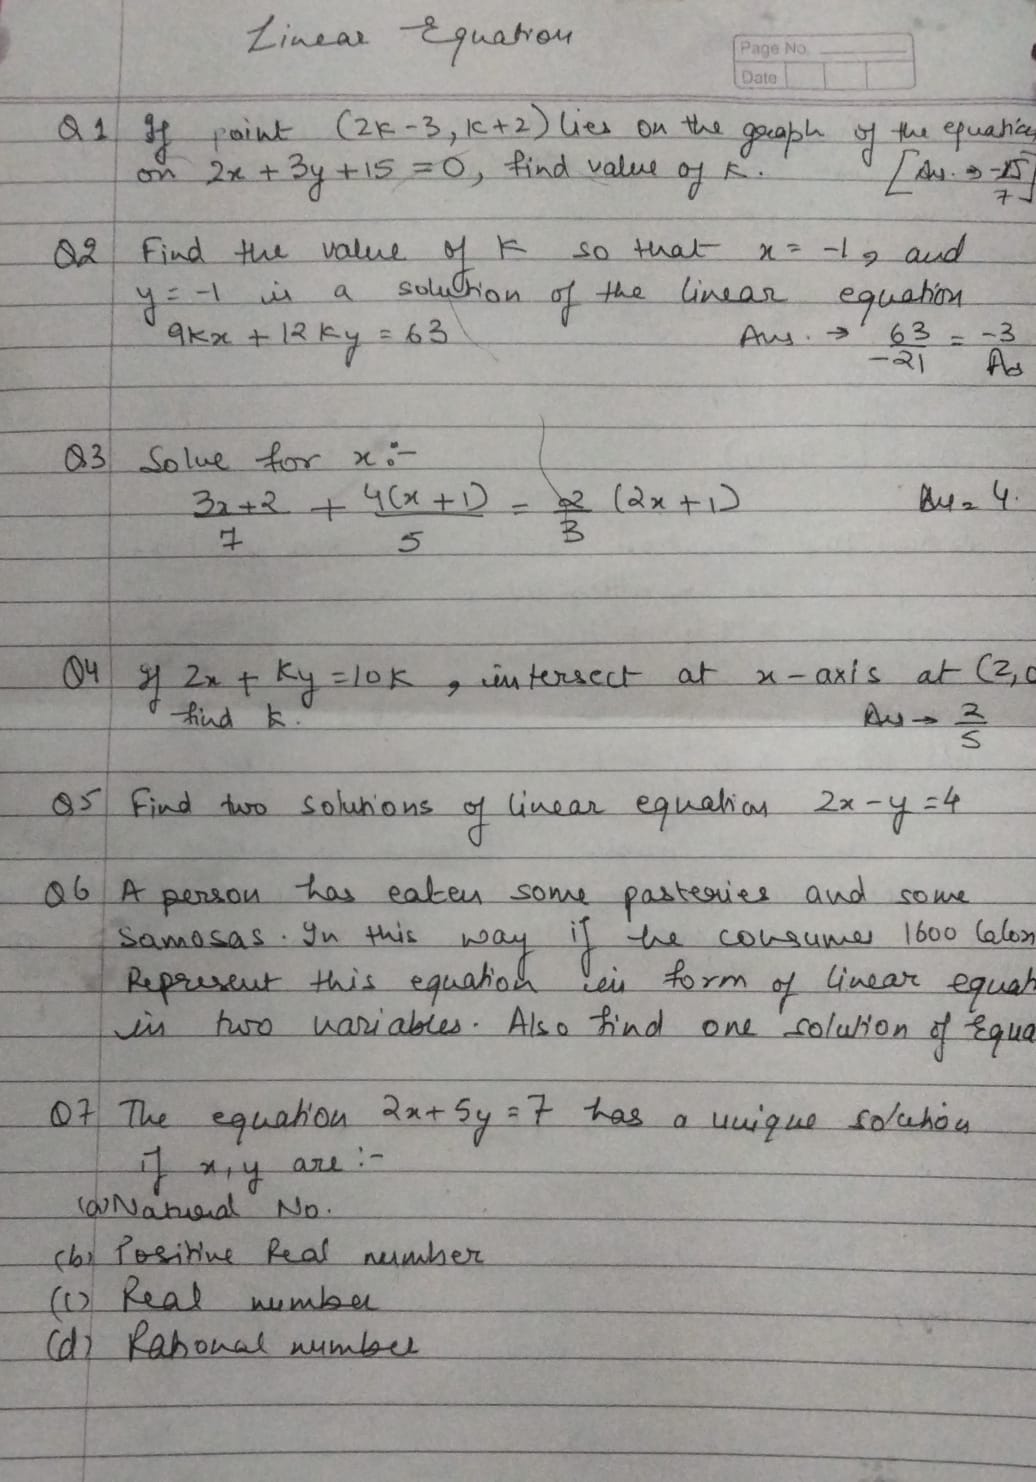 Linear Equation
Page No.
Date
Q1 If point (2k-3, k+2) lies on the graph of the equati
on 2x+3y+15=0, find value of k. [Au. → -15/7]
Q2 Find the value of k so that x = -1, and
y = -1 is a solution of the linear equation
9kx + 12ky = 63 Aus. → 63/-21 = -3 As
Q3 Solve for x :-
(3x+2)/7 + 4(x+1)/5 = 2/3 (2x+1) Au = 4.
Q4 If 2x + ky = 10k, intersect at x-axis at (2,0
find k. Au → 2/5
Q5 Find two solutions of linear equation 2x-y=4
Q6 A person has eaten some pasteries and some
Samosas. In this way if he consumes 1600 Calor
Represent this equation in form of linear equat
in two variables. Also find one solution of Equa
Q7 The equation 2x+5y=7 has a unique solution
if x, y are :-
(a) Natural No.
(b) Positive Real number
(c) Real number
(d) Rational number